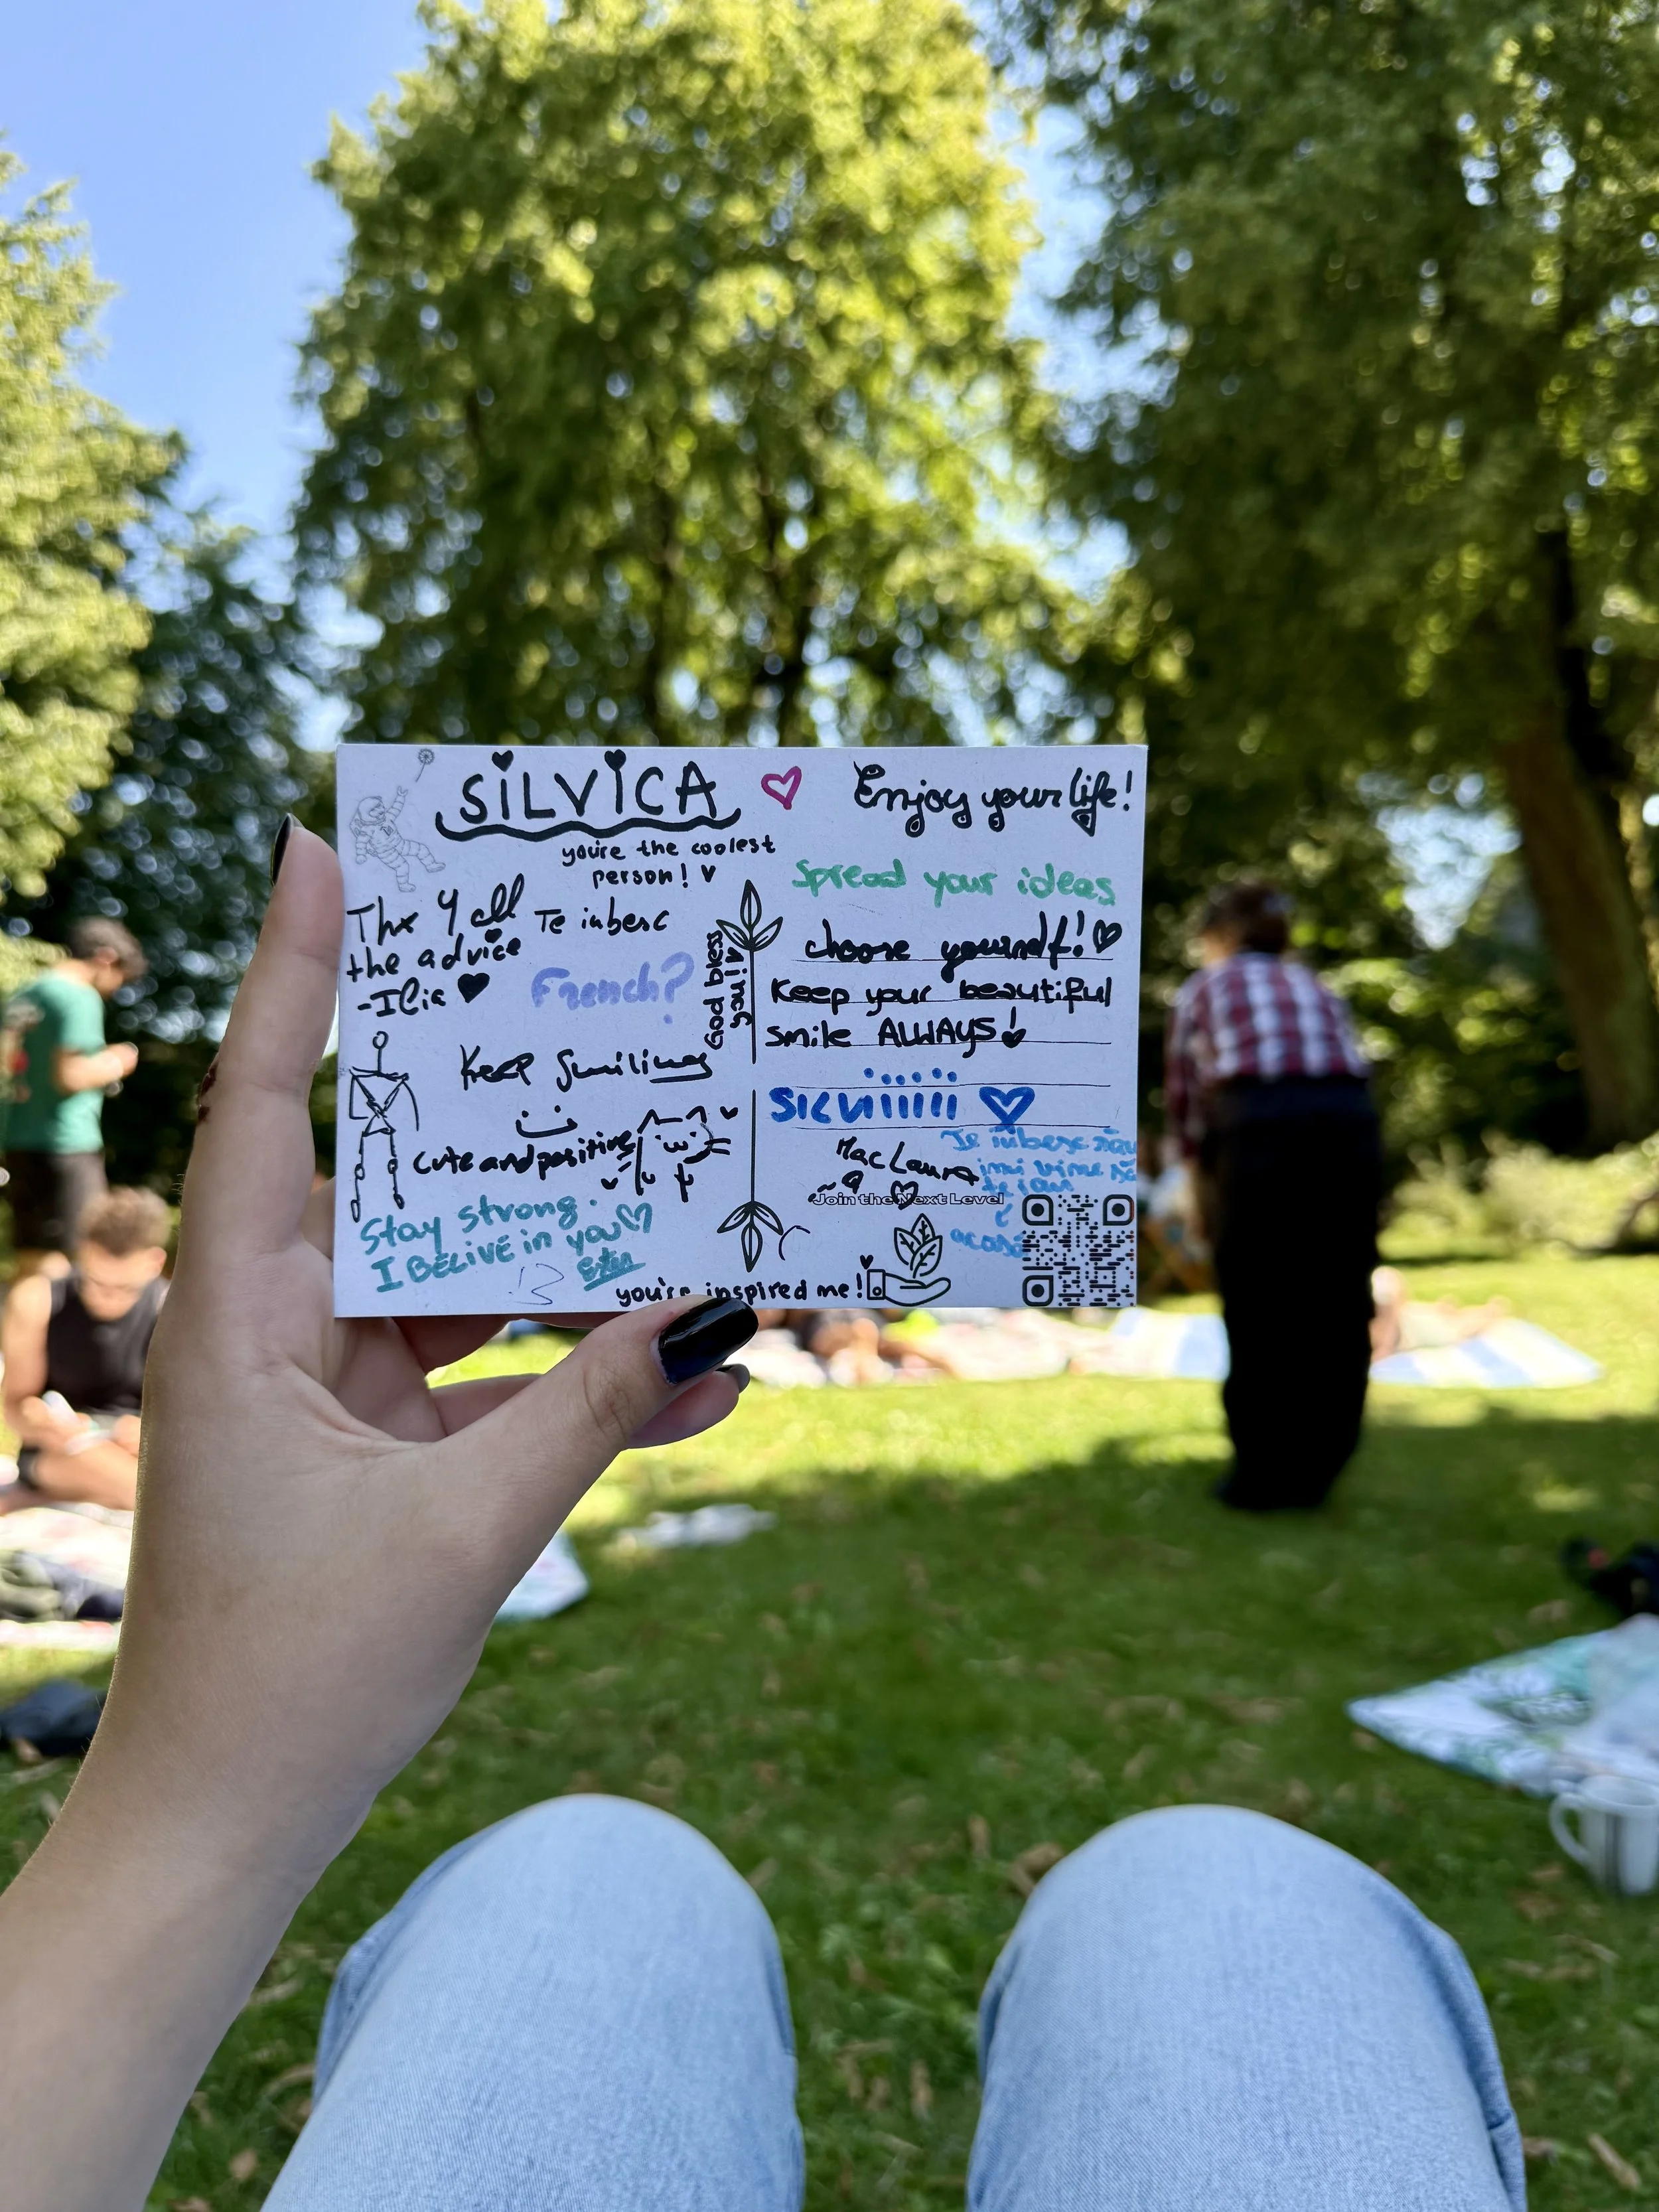 SiLViCA
you're the coolest
person!
Thx 4 all
the advice
-Ilia
Te iubesc
French?
God bless
you!
Keep Smiling
cute and positive
Stay strong.
I BELIVE in you
you're inspired me!
Enjoy your life!
Spread your ideas
choose yourself!
Keep your beautiful
smile ALWAYS!
SiLViiiiii
Mac Laura
Te iubesc rău
îmi vine să
te iau
acasă
Join the Next Level